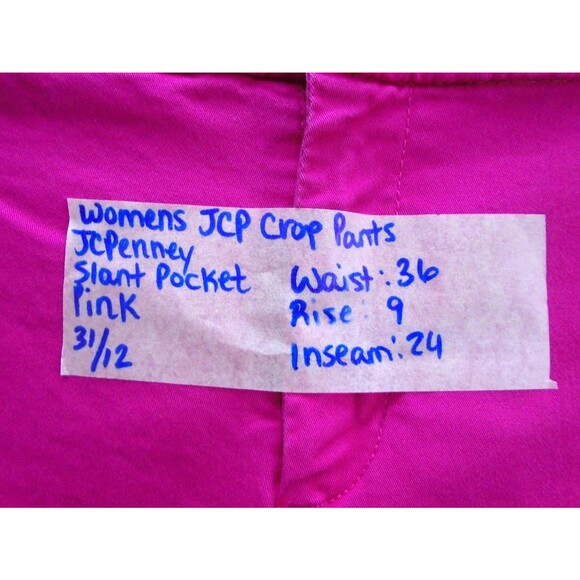 Womens JCP Crop Pants
JCPenney
Slant Pocket
Pink
31/12
Waist: 36
Rise: 9
Inseam: 24